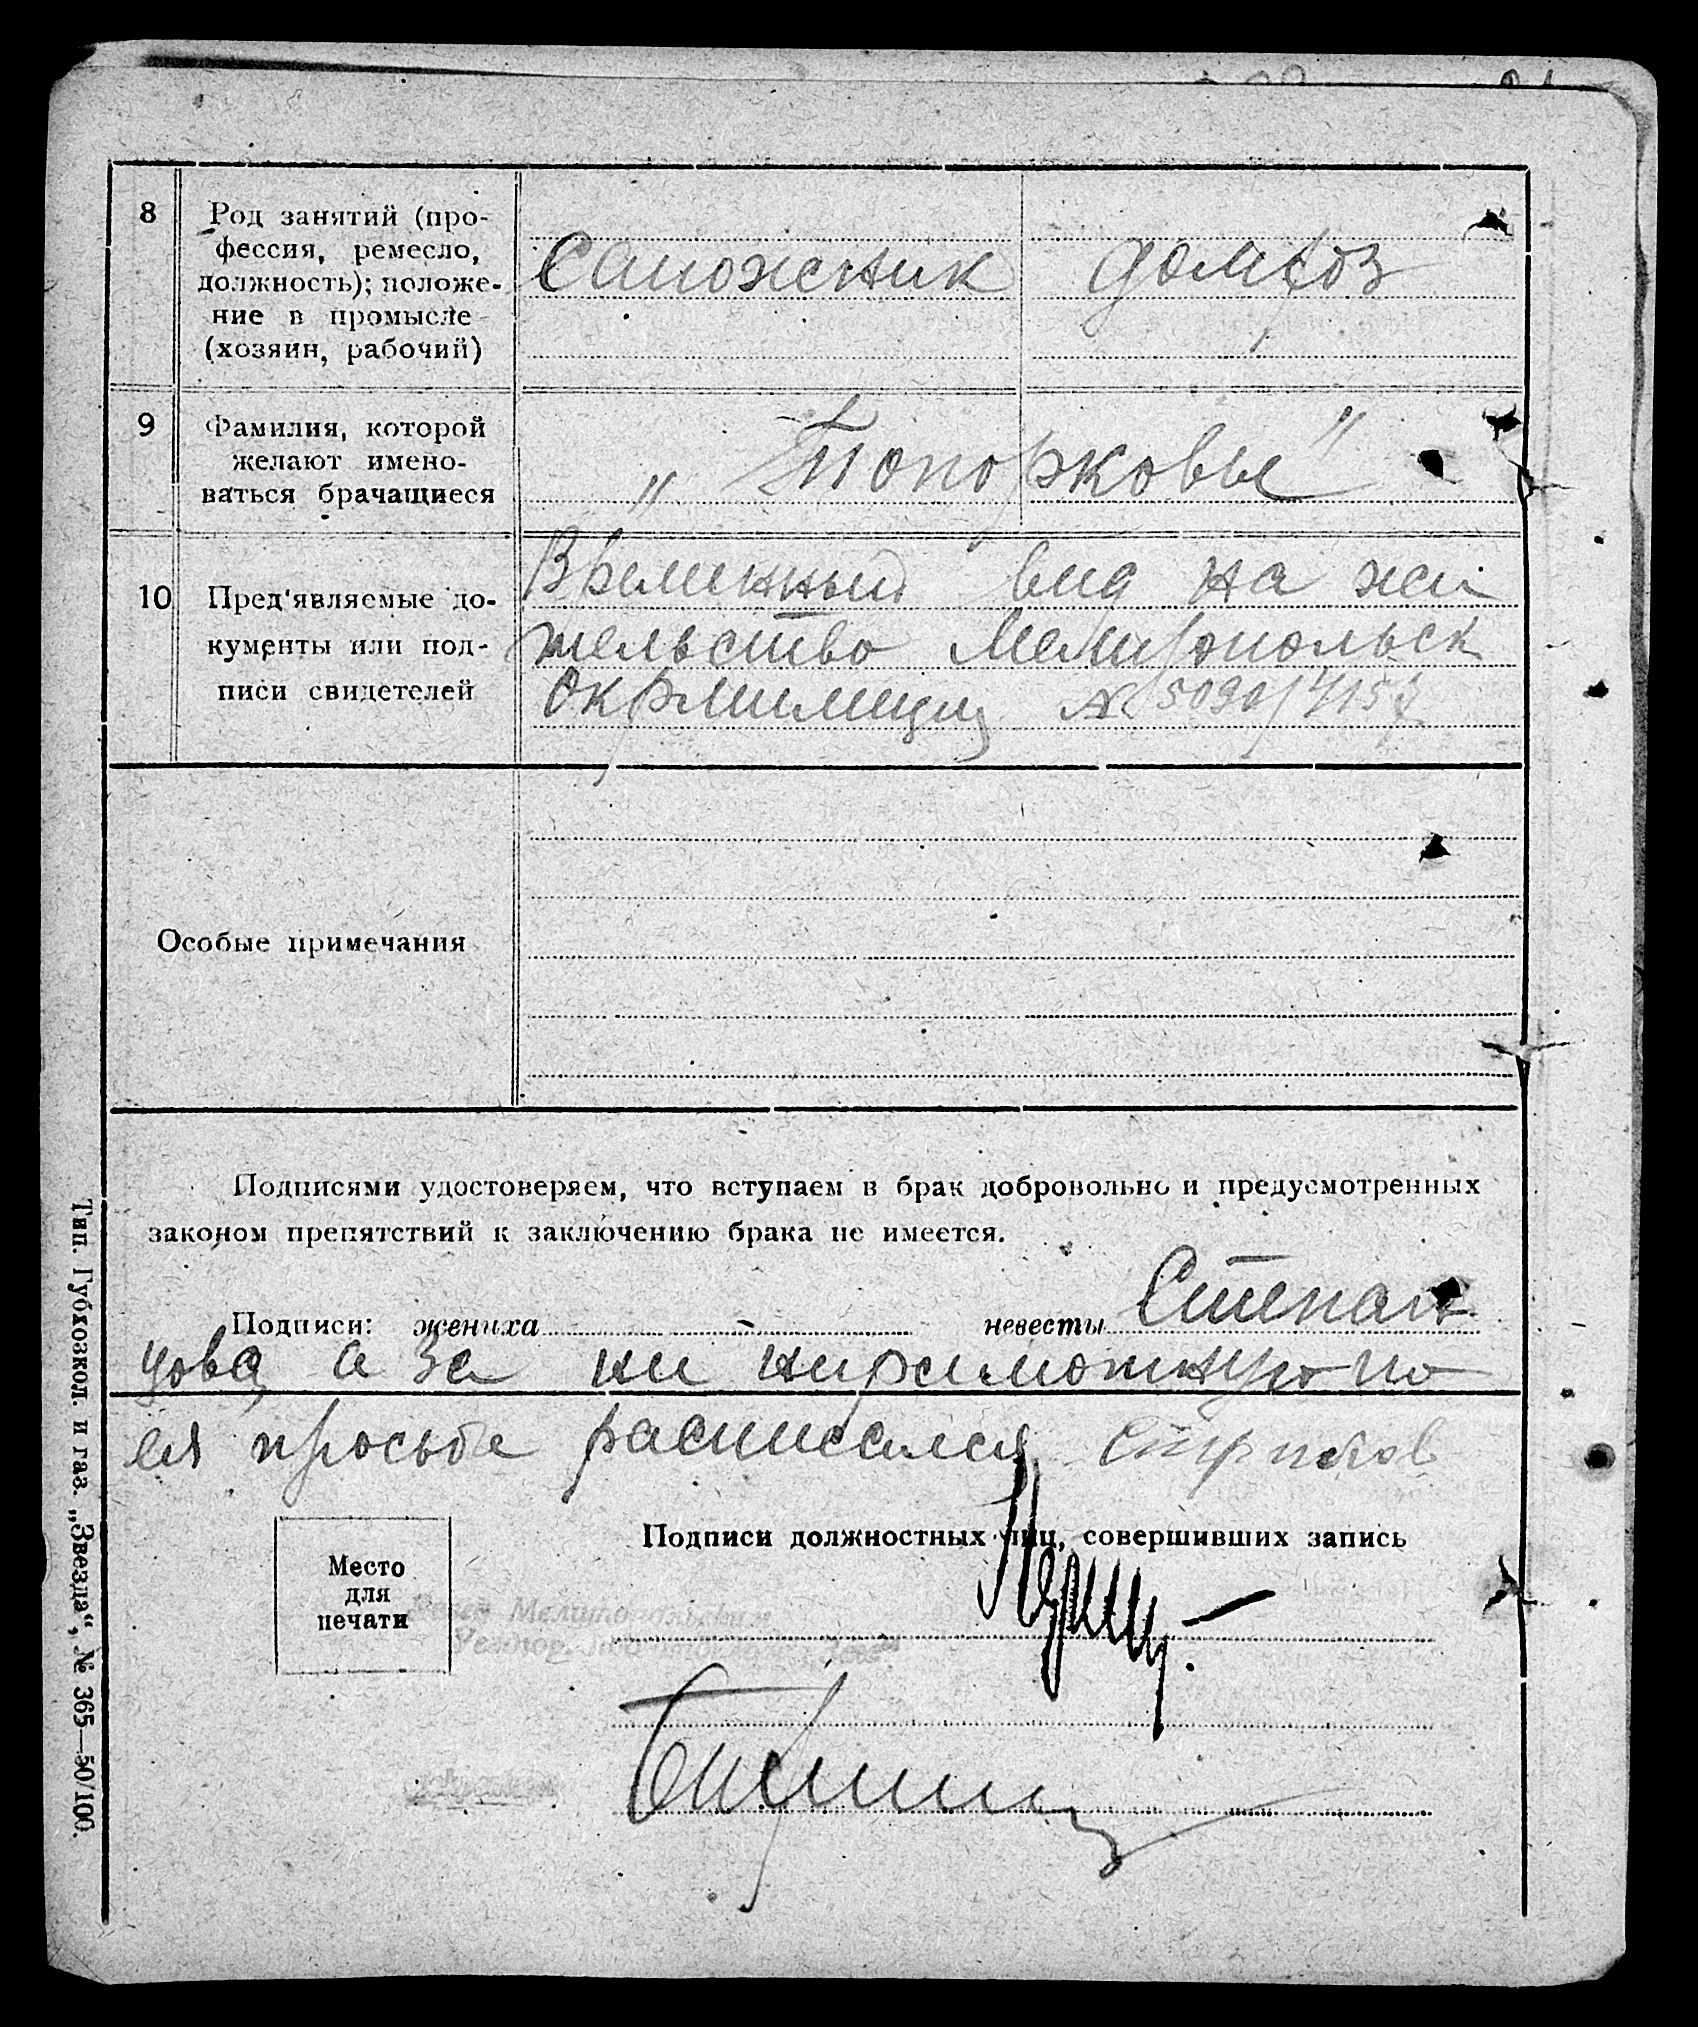 8 Род занятий (про-
фессия, ремесло,
должность); положе-
ние в промысле
(хозяин, рабочий)
Сапожник
домхоз
9 Фамилия, которой
желают имено-
ваться брачащиеся
„Топорковы"
10 Пред'являемые до-
кументы или под-
писи свидетелей
Временный вид на жи
тельство Мелитопольск
Окрмилиции №
Особые примечания
Подписями удостоверяем, что вступаем в брак добровольно и предусмотренных
законом препятствий к заключению брака не имеется.
Подписи: жениха невесты Степан
цова, а за ни
ея просьбе расписался
Место
для
печати
Подписи должностных лиц, совершивших запись
Тип. Губхозкол. и газ. „Звезда", № 365—50/100.